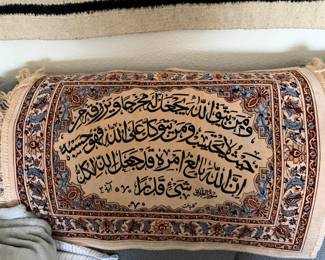 ومن يتق الله يجعل له مخرجا ويرزقه من
حيث لا يحتسب ومن يتوكل على الله فهو حسبه
ان الله بالغ امره قد جعل الله لكل
شئ قدرا